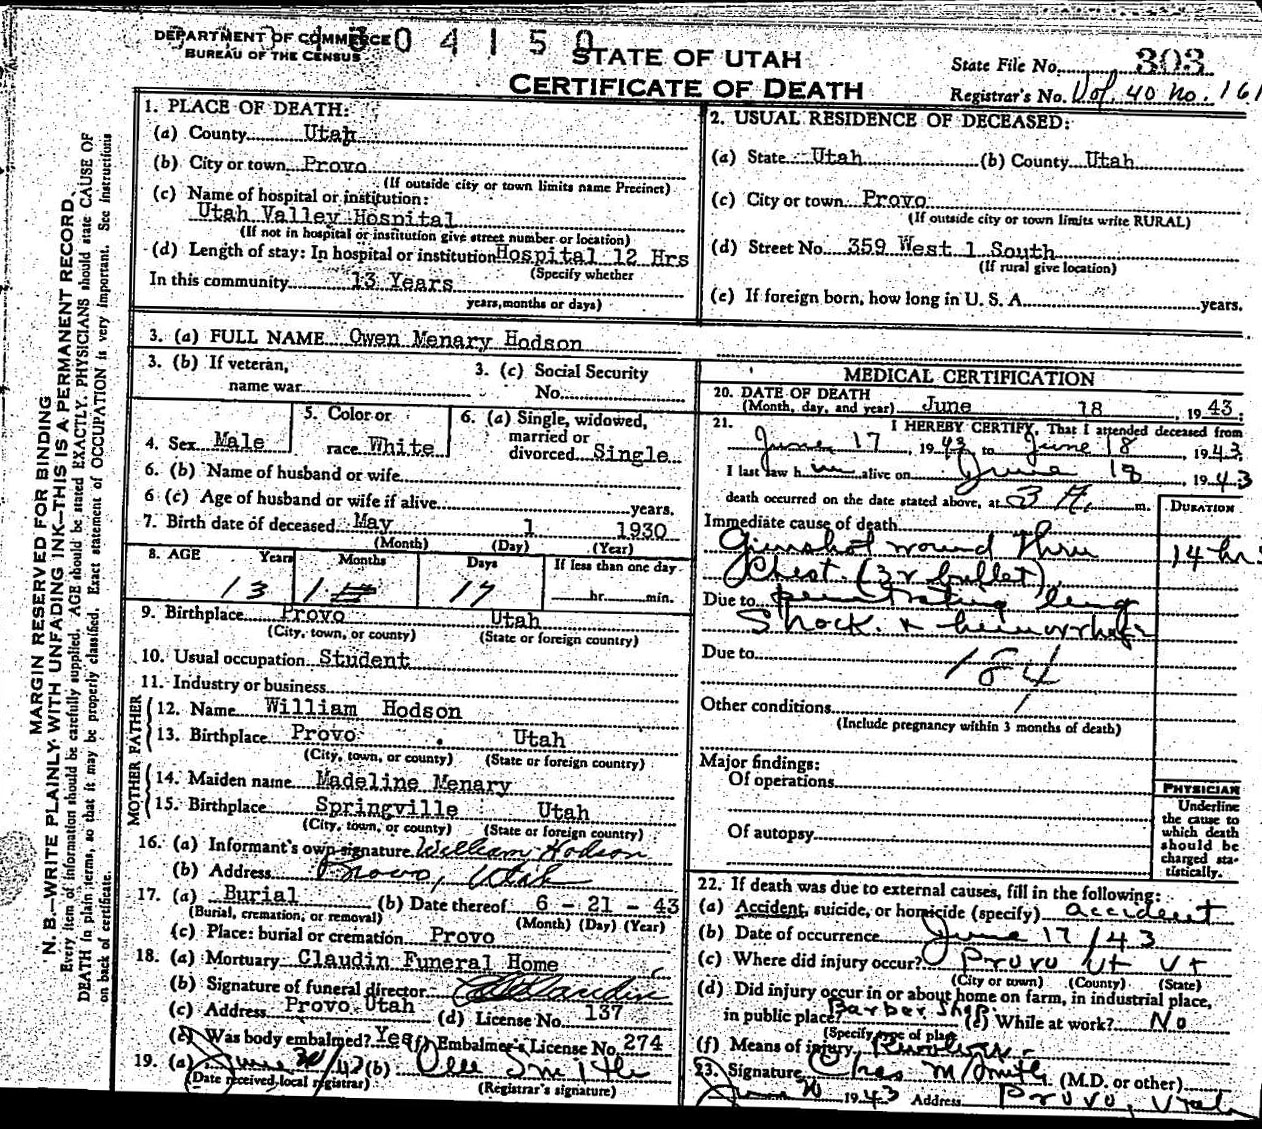 DEPARTMENT OF COMMERCE
BUREAU OF THE CENSUS
0 4 1 5 0
STATE OF UTAH
CERTIFICATE OF DEATH
State File No. 303
Registrar's No. Vol. 40 No. 161
MARGIN RESERVED FOR BINDING
N. B.—WRITE PLAINLY WITH UNFADING INK—THIS IS A PERMANENT RECORD.
Every item of information should be carefully supplied. AGE should be stated EXACTLY. PHYSICIANS should state CAUSE OF
DEATH in plain terms, so that it may be properly classified. Exact statement of OCCUPATION is very important. See instructions
on back of certificate.
1. PLACE OF DEATH:
(a) County Utah
(b) City or town Provo
(If outside city or town limits name Precinct)
(c) Name of hospital or institution:
Utah Valley Hospital
(If not in hospital or institution give street number or location)
(d) Length of stay: In hospital or institution Hospital 12 Hrs
(Specify whether
In this community 13 Years
years, months or days)
2. USUAL RESIDENCE OF DECEASED:
(a) State Utah (b) County Utah
(c) City or town Provo
(If outside city or town limits write RURAL)
(d) Street No. 359 West 1 South
(If rural give location)
(e) If foreign born, how long in U. S. A. years.
3. (a) FULL NAME Owen Menary Hodson
3. (b) If veteran,
name war
3. (c) Social Security
No.
4. Sex Male
5. Color or
race White
6. (a) Single, widowed,
married or
divorced Single
6. (b) Name of husband or wife
6 (c) Age of husband or wife if alive years.
7. Birth date of deceased May 1 1930
(Month) (Day) (Year)
8. AGE Years Months Days If less than one day
13 1 17 hr. min.
9. Birthplace Provo Utah
(City, town, or county) (State or foreign country)
10. Usual occupation Student
11. Industry or business
FATHER
12. Name William Hodson
13. Birthplace Provo Utah
(City, town, or county) (State or foreign country)
MOTHER
14. Maiden name Madeline Menary
15. Birthplace Springville Utah
(City, town, or county) (State or foreign country)
16. (a) Informant's own signature William Hodson
(b) Address Provo, Utah
17. (a) Burial (b) Date thereof 6 - 21 - 43
(Burial, cremation, or removal) (Month) (Day) (Year)
(c) Place: burial or cremation Provo
18. (a) Mortuary Claudin Funeral Home
(b) Signature of funeral director Claudin
(c) Address Provo Utah (d) License No. 137
(e) Was body embalmed? Yes (f) Embalmer's License No. 274
19. (a) June /43 (b) Smith
(Date received local registrar) (Registrar's signature)
MEDICAL CERTIFICATION
20. DATE OF DEATH
(Month, day, and year) June 18, 1943.
21. I HEREBY CERTIFY, That I attended deceased from
June 17, 1943, to June 18, 1943.
I last saw him alive on June 18, 1943
death occurred on the date stated above, at 3 A. m.
DURATION
Immediate cause of death
Gunshot wound thru 14 hrs
Chest. (32 bullet)
Due to penetrating lung
Shock. &
Due to
184
Other conditions
(Include pregnancy within 3 months of death)
Major findings:
Of operations
Of autopsy
PHYSICIAN
Underline
the cause to
which death
should be
charged sta-
tistically.
22. If death was due to external causes, fill in the following:
(a) Accident, suicide, or homicide (specify) accident
(b) Date of occurrence June 17/43
(c) Where did injury occur? Provo Ut Ut
(City or town) (County) (State)
(d) Did injury occur in or about home on farm, in industrial place,
in public place? Barber Shop. (e) While at work? No
(Specify type of place)
(f) Means of injury Revolver
23. Signature Chas M Smith (M.D. or other)
June 20 1943 Address Provo, Utah